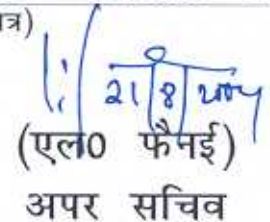 त्र)
21/8/2004
(एल0 फैनई)
अपर सचिव